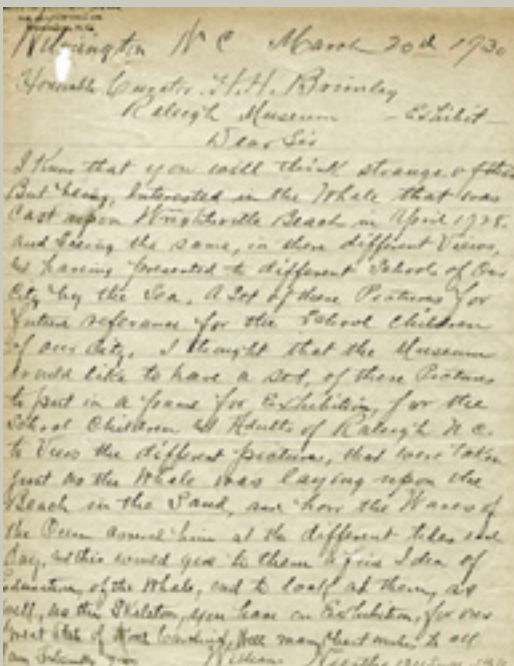 Wilmington N C March 20th 1930
Honorable Curator H. H. Brimley
Raleigh Museum — Exhibit —
Dear Sir
I Know that you will think strange of this
But being, Interested in the Whale that was
Cast upon Wrightsville Beach in April 1928.
and Seeing the same, in there different Views,
as having presented to different Schools of Our
City by the Sea, A Sot of these Pictures for
future reference for the School Children
of our City, I thought that the Museum
would like to have a sot, of these Pictures
to put in a frame for Exhibition, for the
School Children & Adults of Raleigh N. C.
to View the different pictures, that were taken
just as the Whale was laying upon the
Beach in the Sand, and how the Waves of
the Ocean around him at the different tides
Day, as this would give to them a fine Idea of
Education, of the Whale, and to look at them, as
well, as the Skeleton, you have on Exhibition, for our
great State of North Carolina, many to all